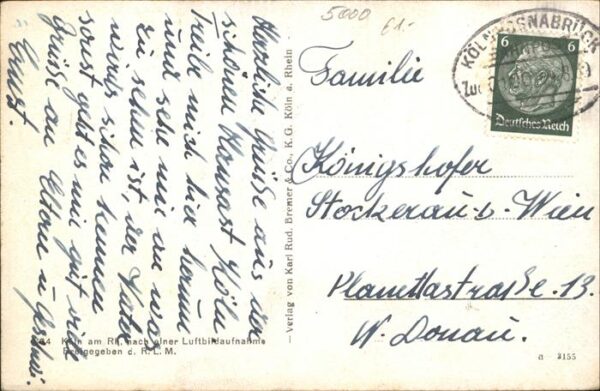 5000
61.-
Herzliche Grüße aus der
schönen Hansast Köln
treibe mich hier herum
und sehe mir an was
zu sehen ist, der Vater
wirds schon kennen
sonst geht es mir gut viele
Grüße an Eltern u Geschwi.
Ernst.
34 Köln am Rh. nach einer Luftbildaufnahme
Freigegeben d. R. L. M.
– Verlag von Karl Rud. Bremer & Co., K. G. Köln a. Rhein
KÖLN OSNABRÜCK
Zug
6 6
Deutsches Reich
Familie
Königshofer
Stockerau b. Wien
Planettastraße. 13.
N. Donau.
a 3155